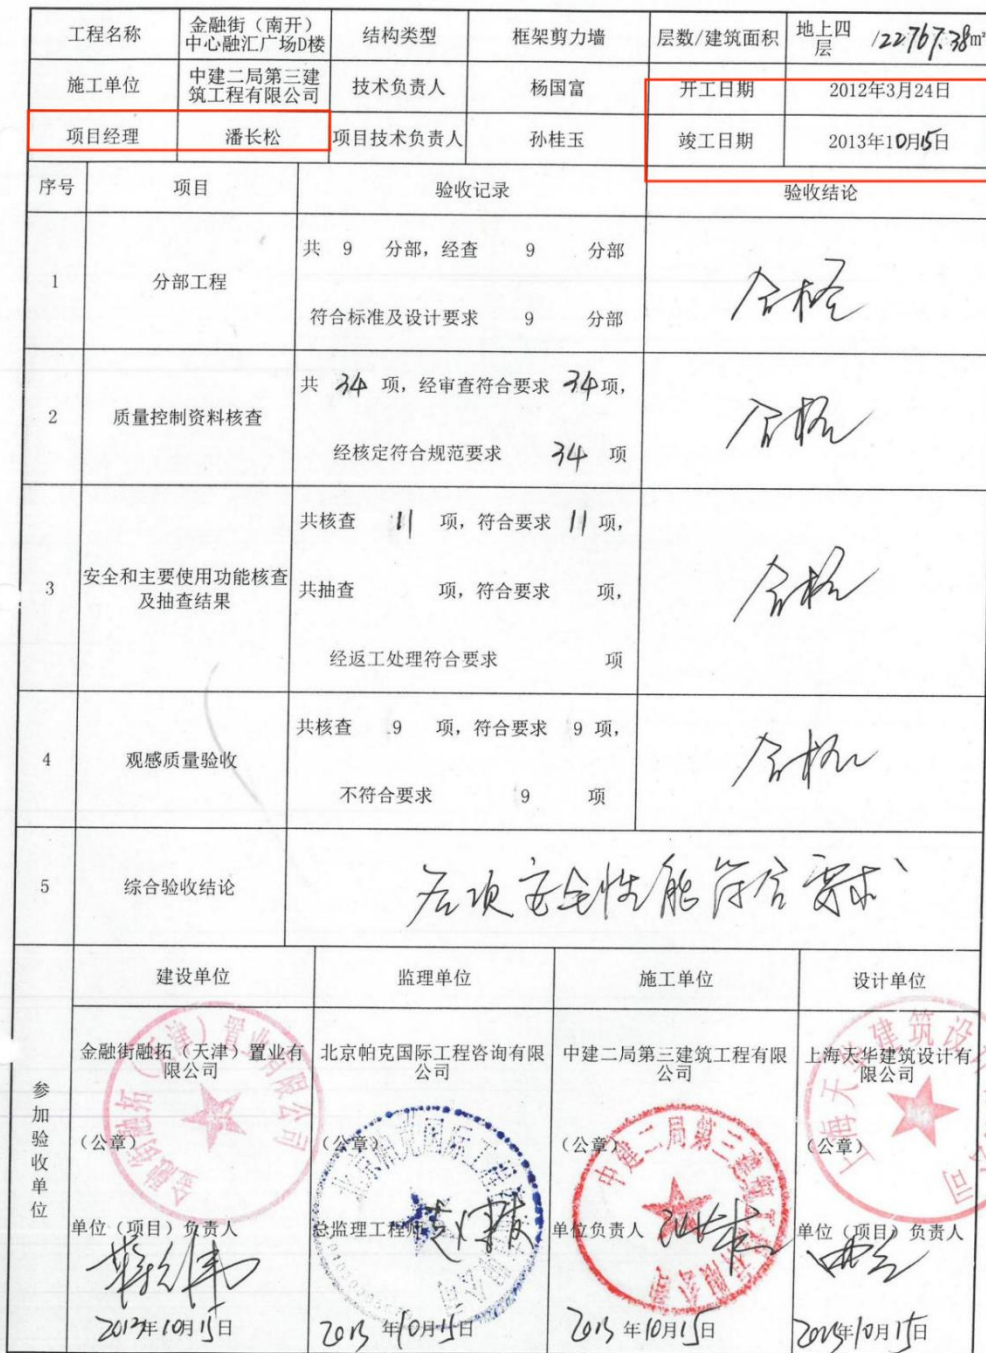 工程名称 金融街（南开）中心融汇广场D楼 结构类型 框架剪力墙 层数/建筑面积 地上四层 /22767.38m²
施工单位 中建二局第三建筑工程有限公司 技术负责人 杨国富 开工日期 2012年3月24日
项目经理 潘长松 项目技术负责人 孙桂玉 竣工日期 2013年10月15日
序号 项目 验收记录 验收结论
1 分部工程 共 9 分部，经查 9 分部
符合标准及设计要求 9 分部
合格
2 质量控制资料核查 共 34 项，经审查符合要求 34 项，
经核定符合规范要求 34 项
合格
3 安全和主要使用功能核查及抽查结果 共核查 11 项，符合要求 11 项，
共抽查 项，符合要求 项，
经返工处理符合要求 项
合格
4 观感质量验收 共核查 9 项，符合要求 9 项，
不符合要求 9 项
合格
5 综合验收结论 各项安全性能符合要求
参加验收单位
建设单位 监理单位 施工单位 设计单位
金融街融拓（天津）置业有限公司 北京帕克国际工程咨询有限公司 中建二局第三建筑工程有限公司 上海天华建筑设计有限公司
（公章） （公章） （公章） （公章）
单位（项目）负责人 总监理工程师 单位负责人 单位（项目）负责人
2013年10月15日 2013年10月15日 2013年10月15日 2013年10月15日